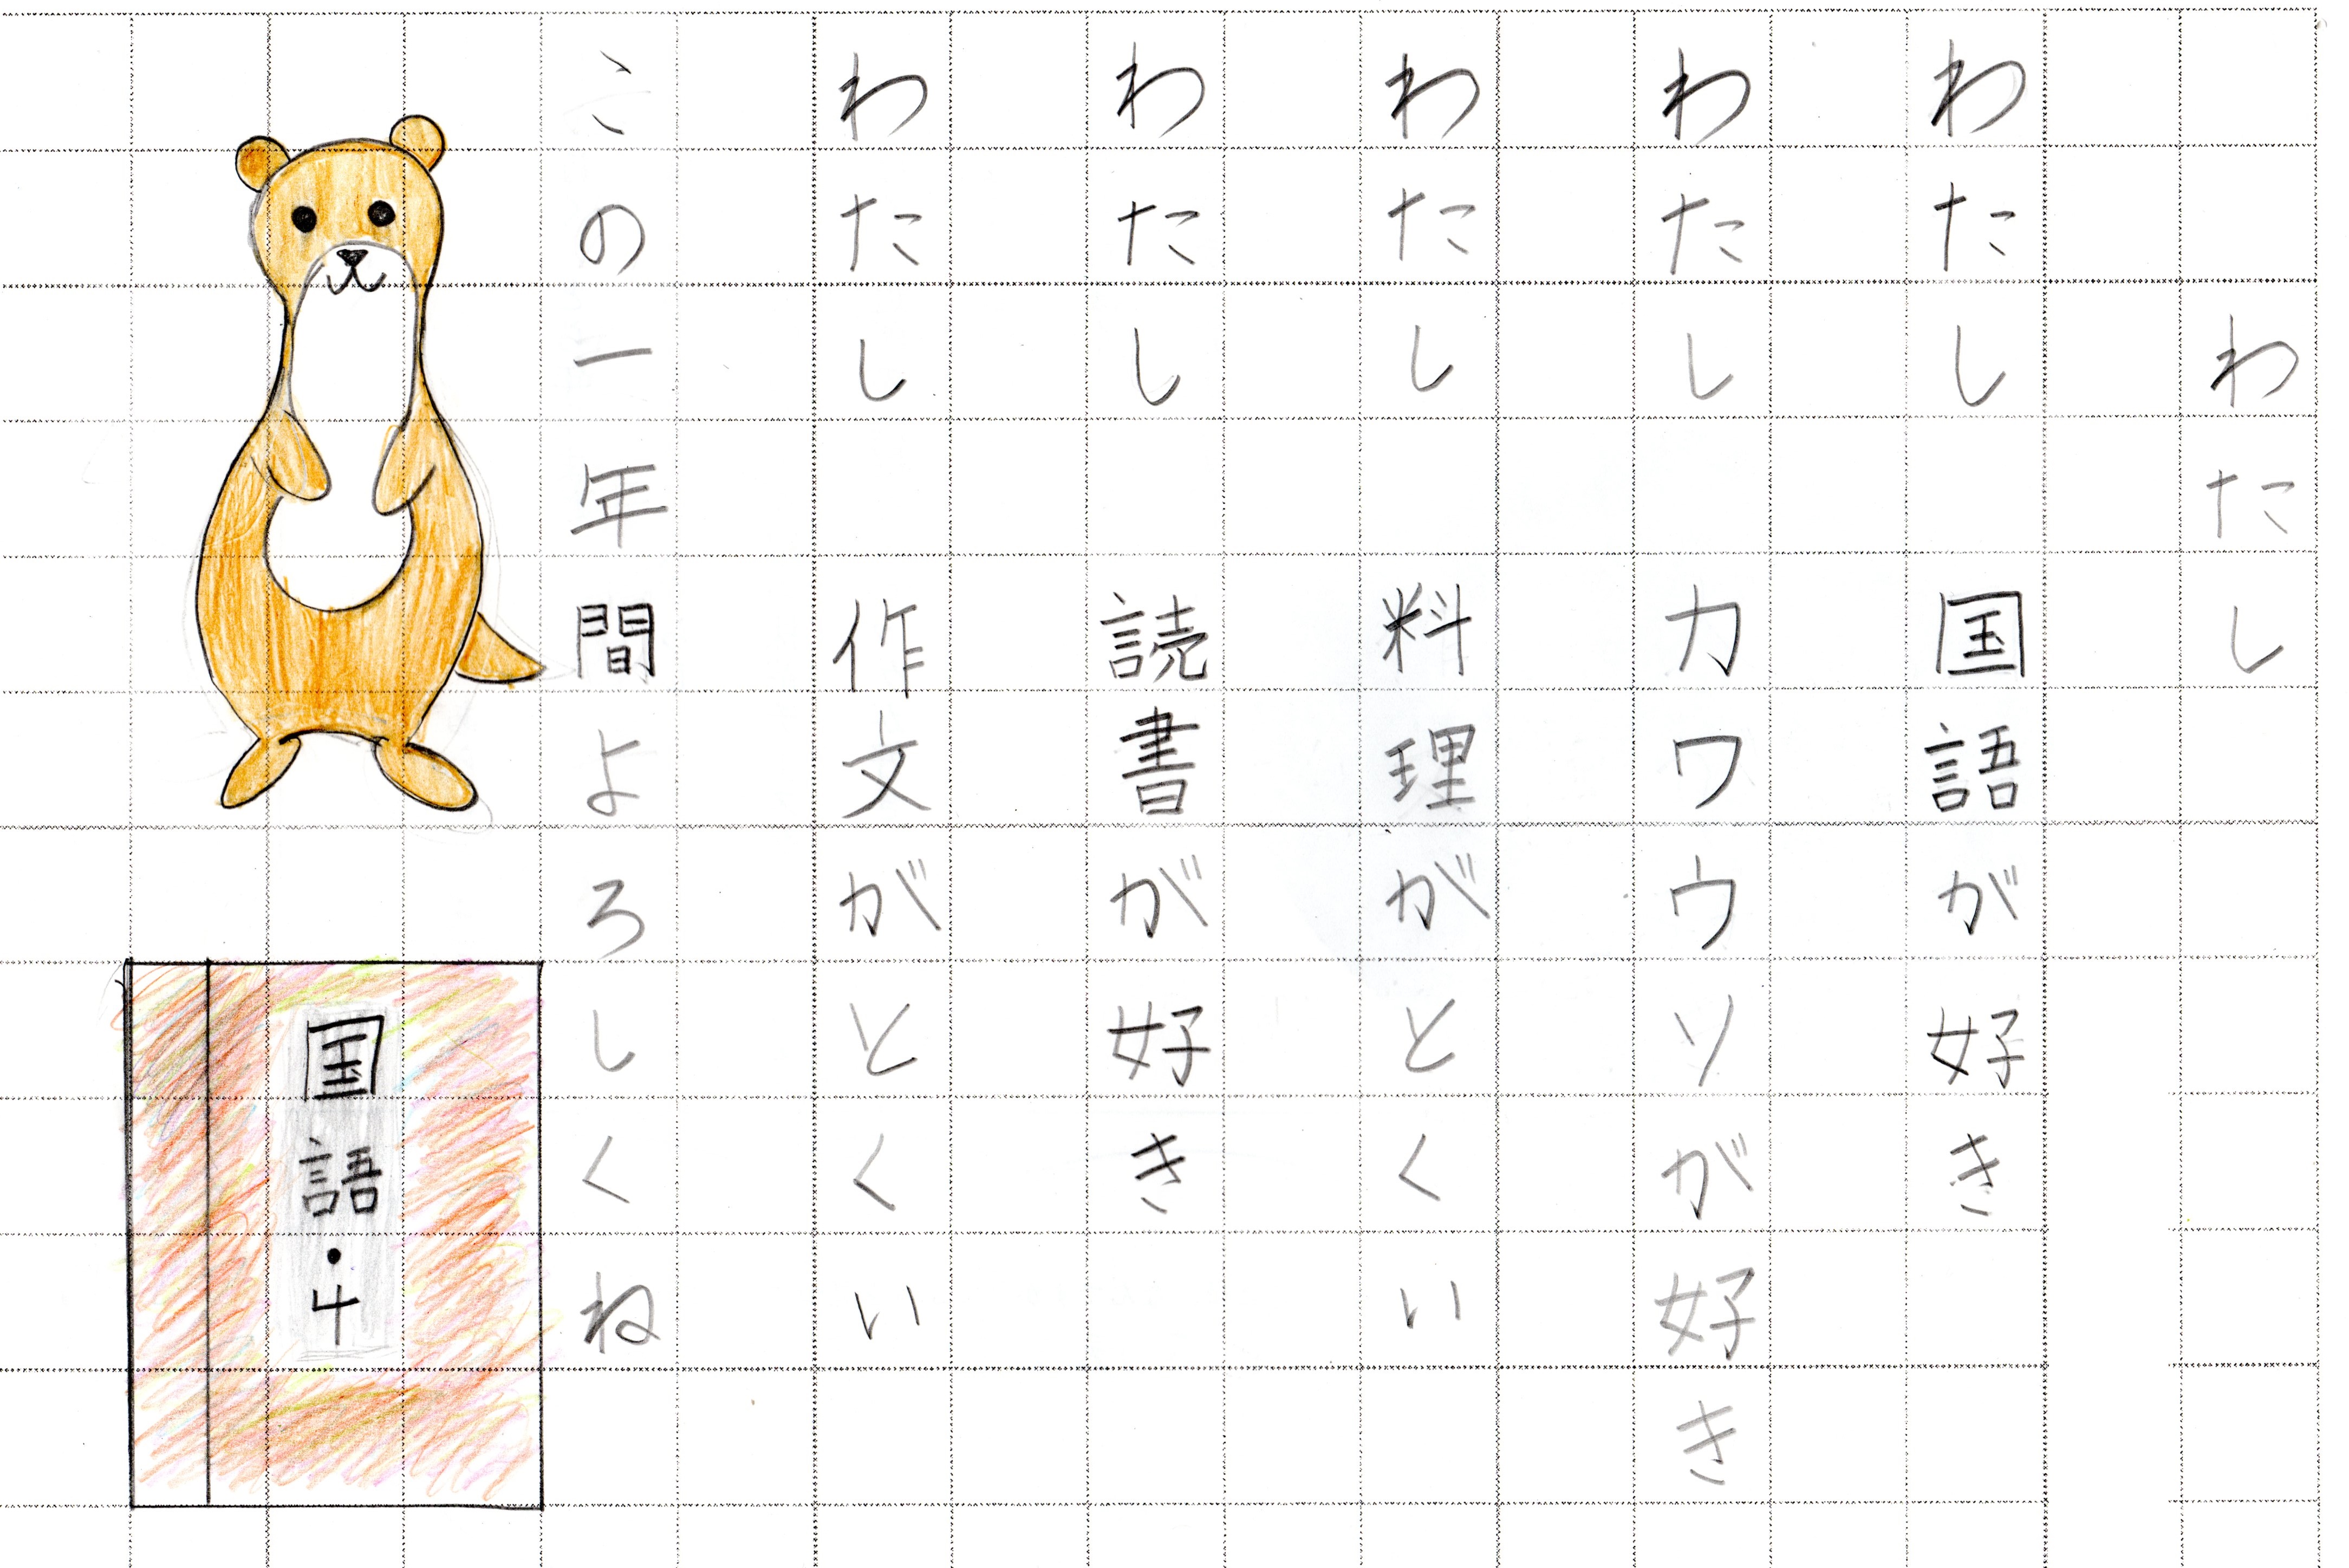 わたし
わたし　国語が好き
わたし　カワウソが好き
わたし　料理がとくい
わたし　読書が好き
わたし　作文がとくい
この一年間よろしくね
国語・4